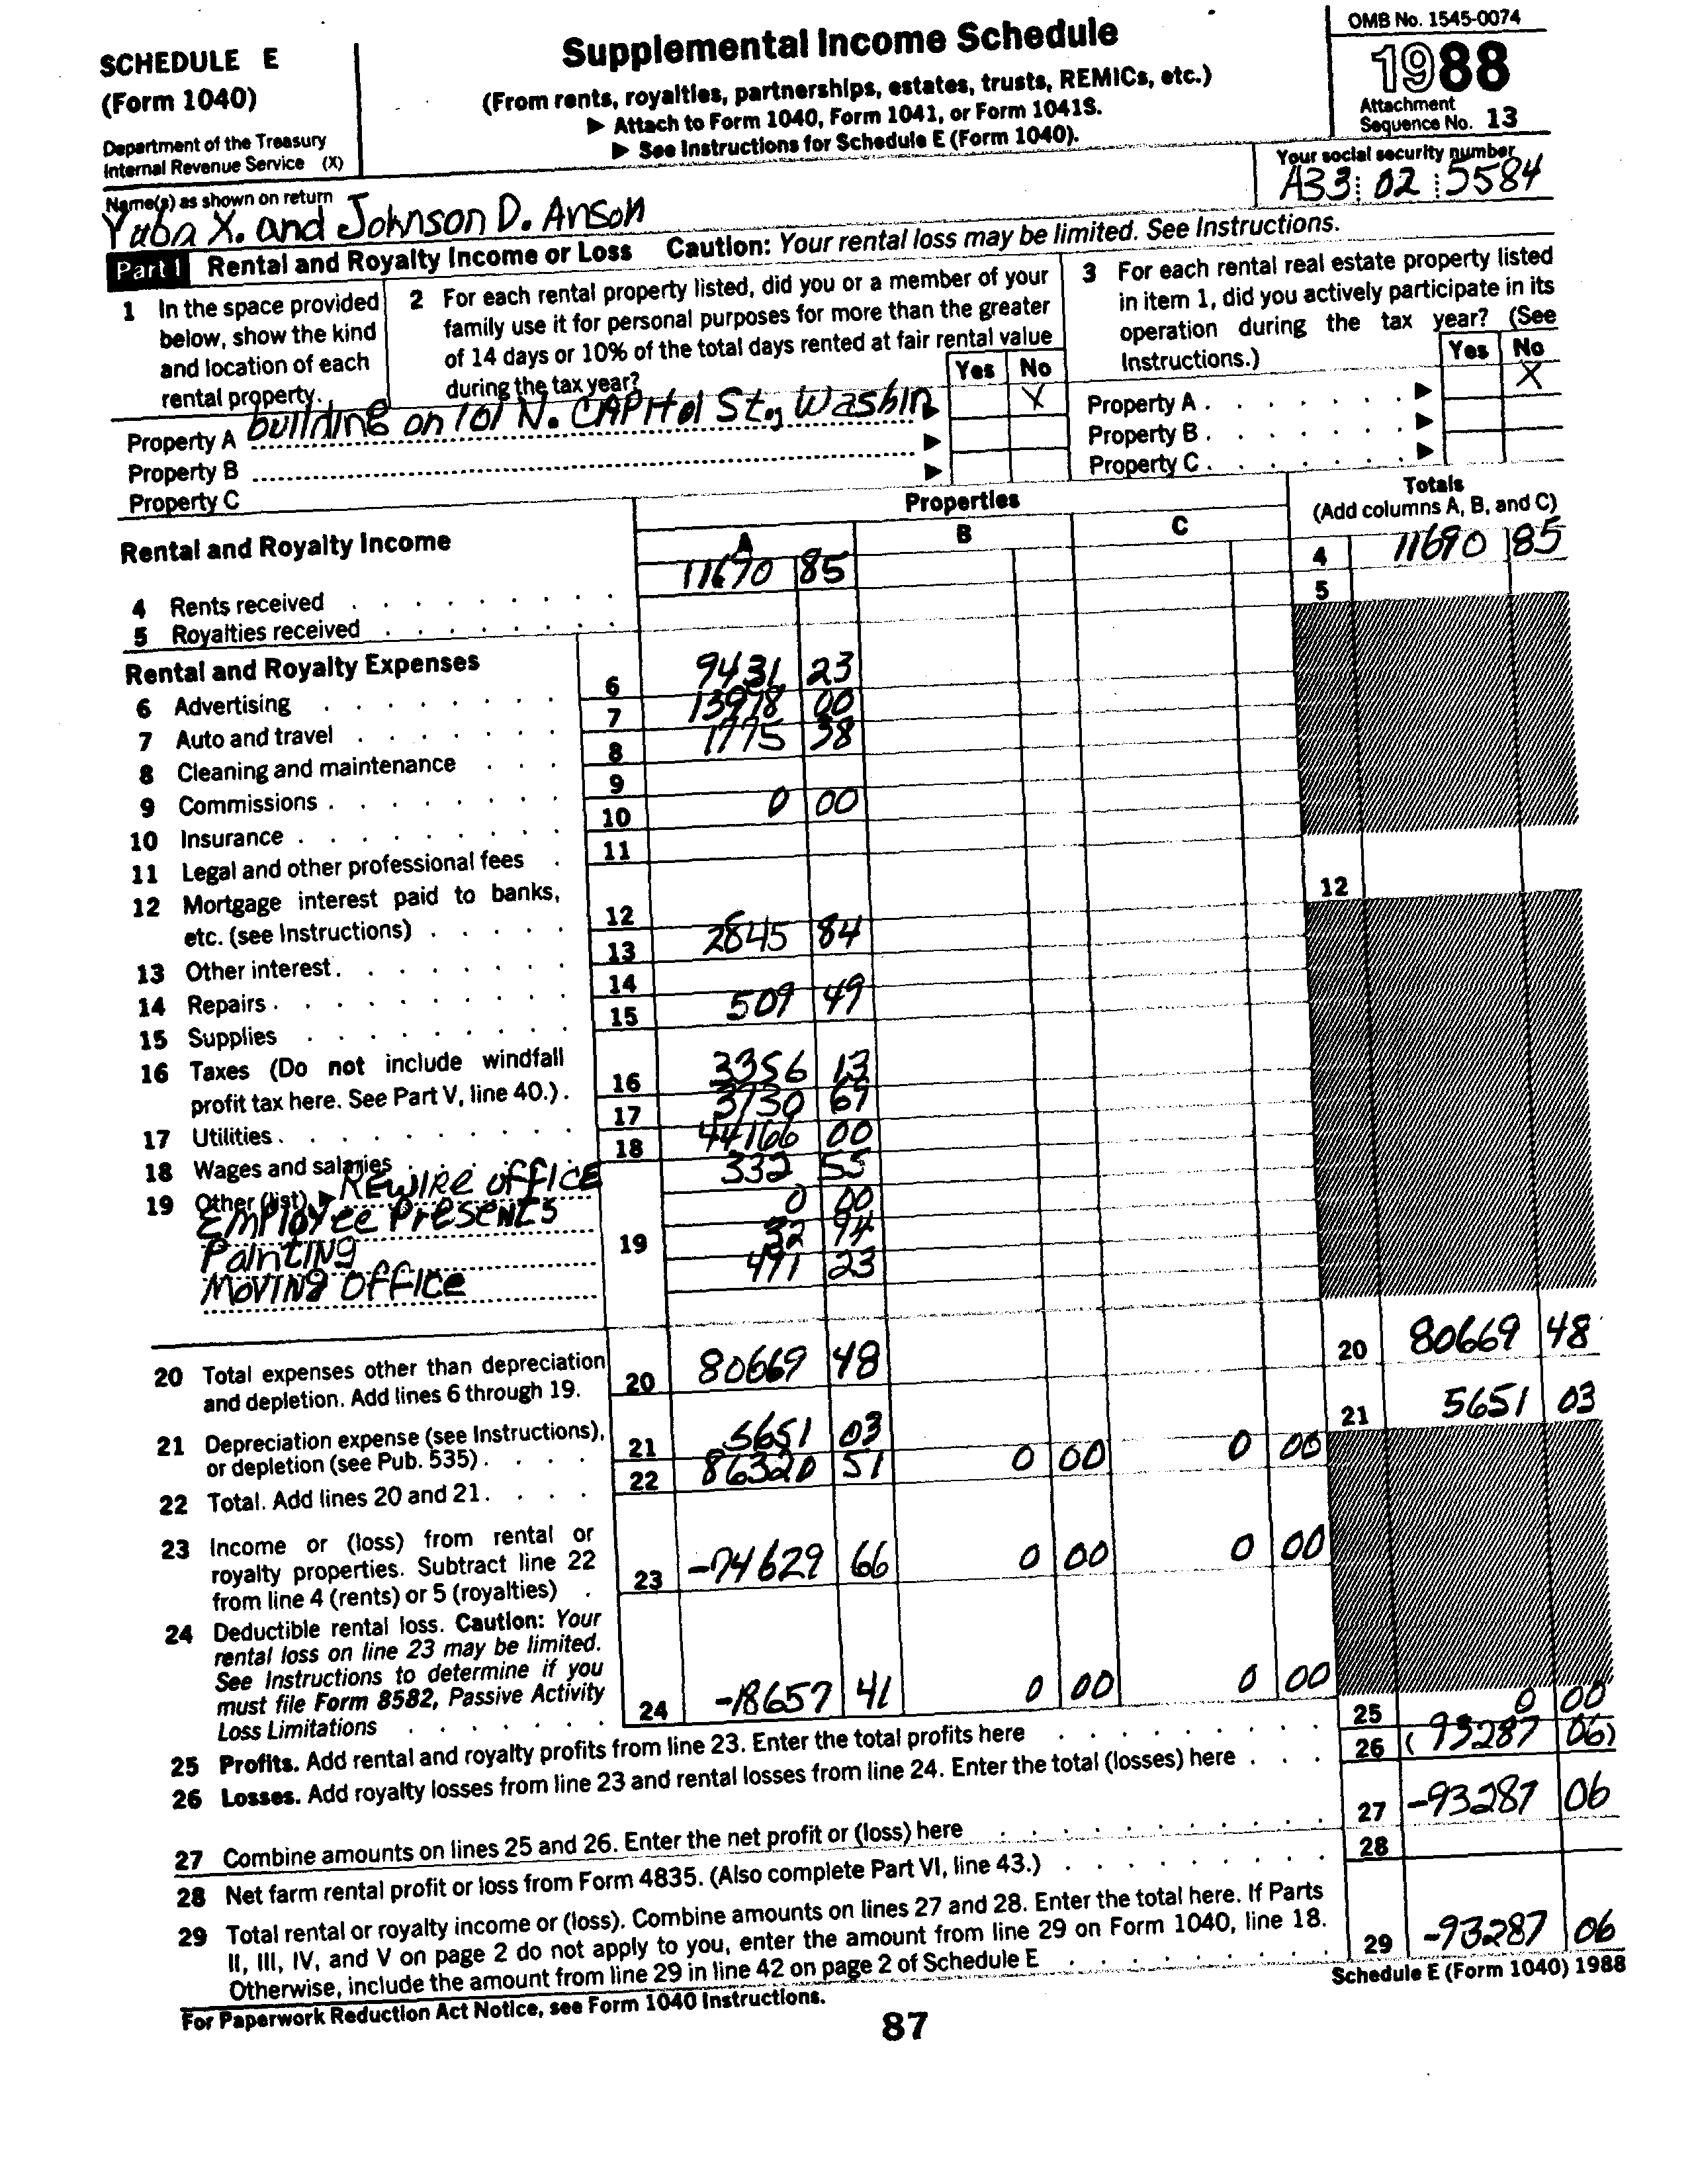 SCHEDULE E
(Form 1040)
Department of the Treasury
Internal Revenue Service (X)
Supplemental Income Schedule
(From rents, royalties, partnerships, estates, trusts, REMICs, etc.)
▶ Attach to Form 1040, Form 1041, or Form 1041S.
▶ See Instructions for Schedule E (Form 1040).
OMB No. 1545-0074
1988
Attachment
Sequence No. 13
Name(s) as shown on return
Yuba X. and Johnson D. Anson
Your social security number
A33 02 5584
Part I Rental and Royalty Income or Loss Caution: Your rental loss may be limited. See Instructions.
1 In the space provided below, show the kind and location of each rental property.
2 For each rental property listed, did you or a member of your family use it for personal purposes for more than the greater of 14 days or 10% of the total days rented at fair rental value during the tax year?
Yes No
3 For each rental real estate property listed in item 1, did you actively participate in its operation during the tax year? (See Instructions.)
Yes No
Property A building on 101 N. CAPITol St., Washin ▶ X
Property B ▶
Property C ▶
Property A . ▶ X
Property B . ▶
Property C . ▶
Rental and Royalty Income
Properties
A B C
Totals
(Add columns A, B, and C)
4 Rents received 11690 85 4 11690 85
5 Royalties received 5
Rental and Royalty Expenses
6 Advertising 6 9431 23
7 Auto and travel 7 13978 00
8 Cleaning and maintenance 8 1775 38
9 Commissions 9
10 Insurance 10 0 00
11 Legal and other professional fees 11
12 Mortgage interest paid to banks, etc. (see Instructions) 12 12
13 Other interest 13 2845 84
14 Repairs 14
15 Supplies 15 509 49
16 Taxes (Do not include windfall profit tax here. See Part V, line 40.) 16 3356 13
17 Utilities 17 3730 67
18 Wages and salaries 18 44166 00
19 Other (list) ▶ REWIRE OFFICE 332 55
EMPloYee PreSeNTS 0 00
PaINTINg 19 32 94
MoVINg OFFIce 491 23
20 Total expenses other than depreciation and depletion. Add lines 6 through 19. 20 80669 48 20 80669 48
21 Depreciation expense (see Instructions), or depletion (see Pub. 535) 21 5651 03 21 5651 03
22 Total. Add lines 20 and 21. 22 86320 51 0 00 0 00
23 Income or (loss) from rental or royalty properties. Subtract line 22 from line 4 (rents) or 5 (royalties) 23 -74629 66 0 00 0 00
24 Deductible rental loss. Caution: Your rental loss on line 23 may be limited. See Instructions to determine if you must file Form 8582, Passive Activity Loss Limitations 24 -18657 41 0 00 0 00
25 Profits. Add rental and royalty profits from line 23. Enter the total profits here 25 0 00
26 Losses. Add royalty losses from line 23 and rental losses from line 24. Enter the total (losses) here 26 (93287 06)
27 Combine amounts on lines 25 and 26. Enter the net profit or (loss) here 27 -93287 06
28 Net farm rental profit or loss from Form 4835. (Also complete Part VI, line 43.) 28
29 Total rental or royalty income or (loss). Combine amounts on lines 27 and 28. Enter the total here. If Parts II, III, IV, and V on page 2 do not apply to you, enter the amount from line 29 on Form 1040, line 18. Otherwise, include the amount from line 29 in line 42 on page 2 of Schedule E 29 -93287 06
For Paperwork Reduction Act Notice, see Form 1040 Instructions.
Schedule E (Form 1040) 1988
87